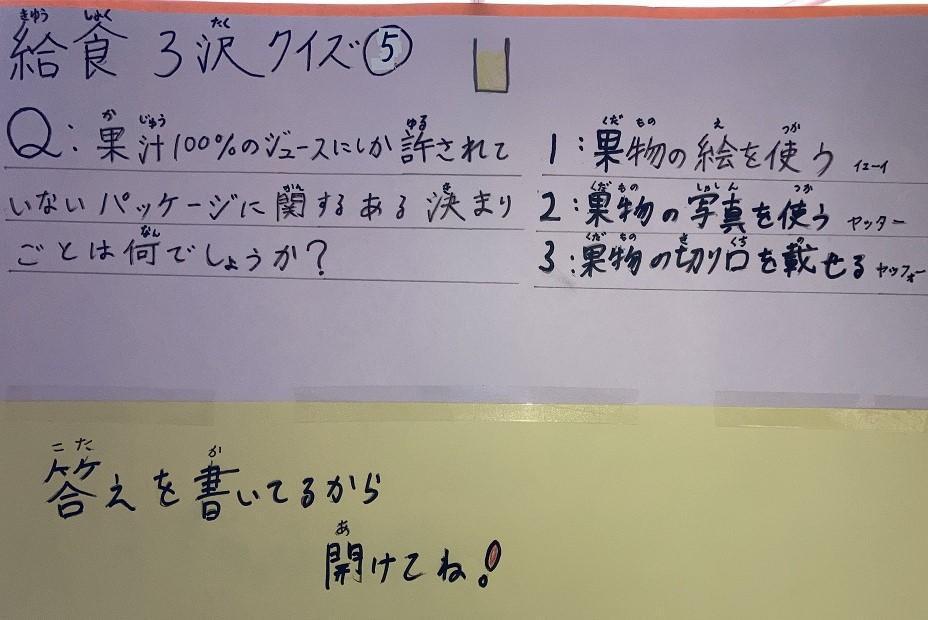 給食 3沢 クイズ⑤
Q:果汁100%のジュースにしか許されて
いないパッケージに関するある決まり
ごとは何でしょうか?
1:果物の絵を使う イエーイ
2:果物の写真を使う ヤッター
3:果物の切り口を載せる ヤッフォー
答えを書いてるから
開けてね!